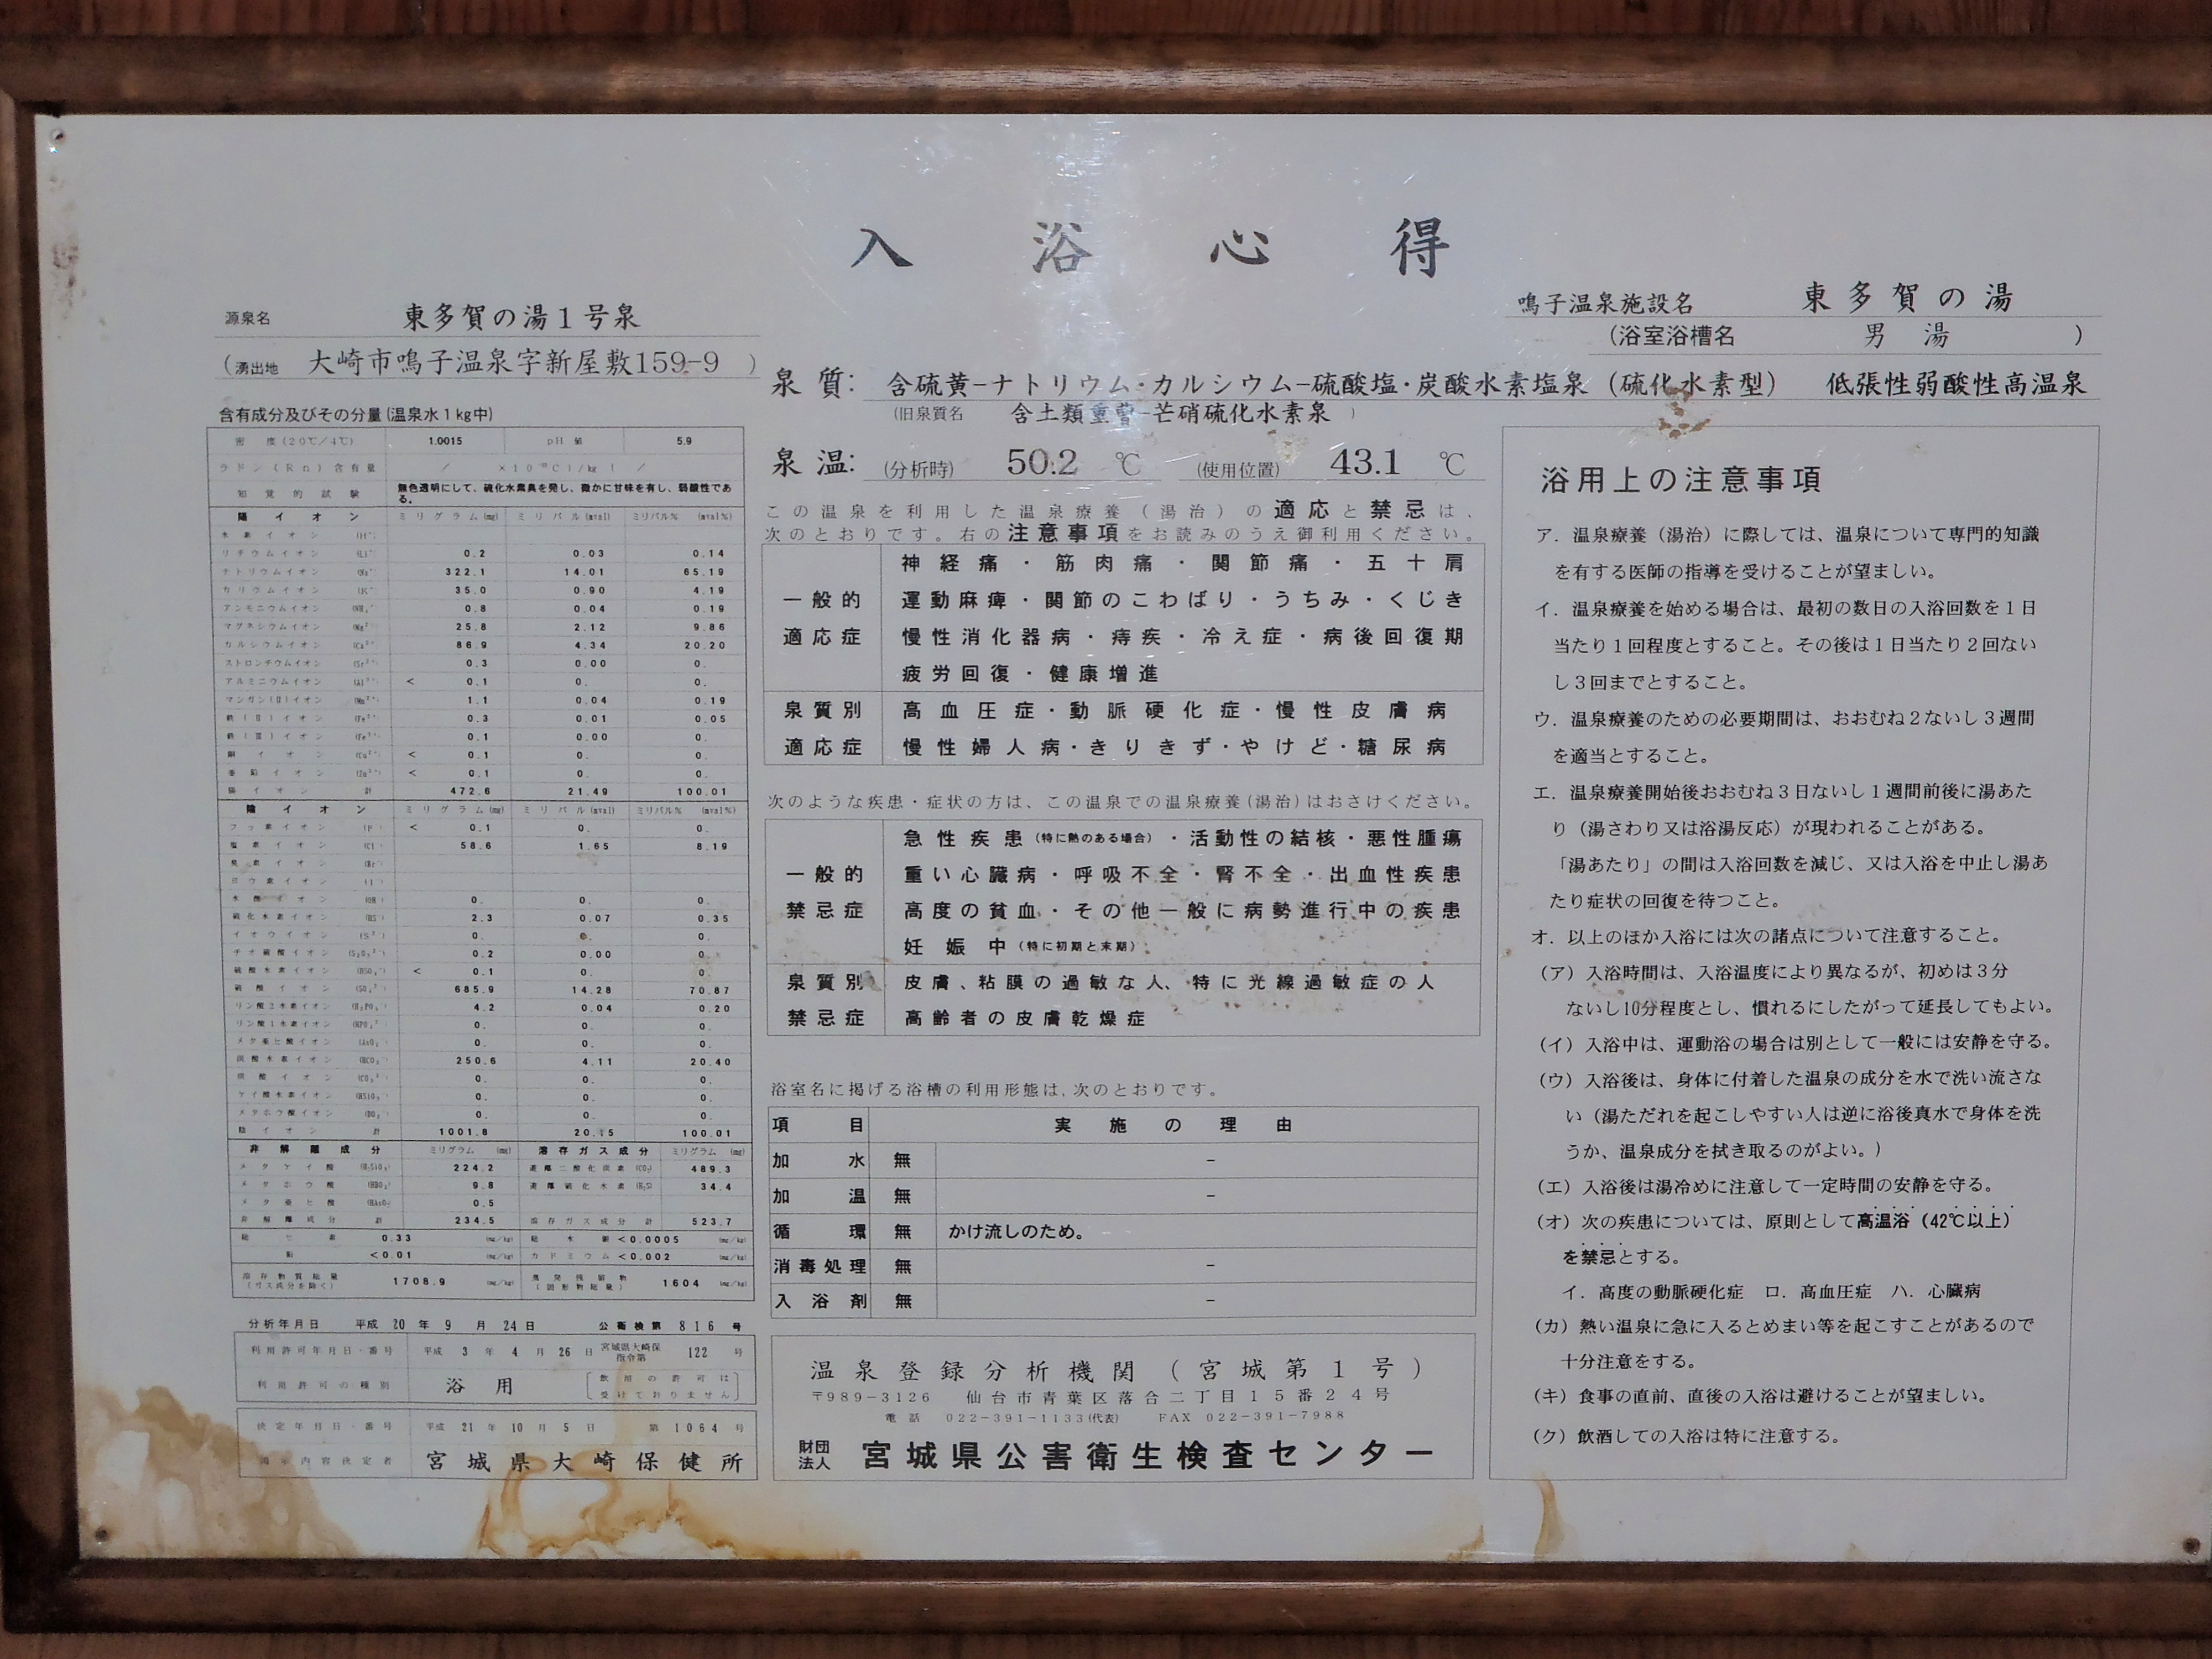 入浴心得
源泉名 東多賀の湯1号泉
(湧出地 大崎市鳴子温泉字新屋敷159-9 )
鳴子温泉施設名 東多賀の湯
(浴室浴槽名 男湯 )
泉質: 含硫黄-ナトリウム・カルシウム-硫酸塩・炭酸水素塩泉 (硫化水素型) 低張性弱酸性高温泉
(旧泉質名 含土類重曹-芒硝硫化水素泉 )
泉温: (分析時) 50.2 ℃ (使用位置) 43.1 ℃
含有成分及びその分量(温泉水1kg中)
密度(20℃/4℃) 1.0015 pH値 5.9
ラドン(Rn)含有量
知覚的試験 無色透明にして、硫化水素臭を発し、微かに甘味を有し、弱酸性である。
陽イオン ミリグラム(mg) ミリバル(mval) ミリバル% (mval%)
水素イオン (H⁺)
リチウムイオン (Li⁺) 0.2 0.03 0.14
ナトリウムイオン (Na⁺) 322.1 14.01 65.19
カリウムイオン (K⁺) 35.0 0.90 4.19
アンモニウムイオン (NH₄⁺) 0.8 0.04 0.19
マグネシウムイオン (Mg²⁺) 25.8 2.12 9.86
カルシウムイオン (Ca²⁺) 86.9 4.34 20.20
ストロンチウムイオン (Sr²⁺) 0.3 0.00 0.
アルミニウムイオン (Al³⁺) < 0.1 0. 0.
マンガン(Ⅱ)イオン (Mn²⁺) 1.1 0.04 0.19
鉄(Ⅱ)イオン (Fe²⁺) 0.3 0.01 0.05
鉄(Ⅲ)イオン (Fe³⁺) 0.1 0.00 0.
銅イオン (Cu²⁺) < 0.1 0. 0.
亜鉛イオン (Zn²⁺) < 0.1 0. 0.
陽イオン計 472.6 21.49 100.01
陰イオン ミリグラム(mg) ミリバル(mval) ミリバル% (mval%)
フッ素イオン (F⁻) < 0.1 0. 0.
塩素イオン (Cl⁻) 58.6 1.65 8.19
臭素イオン (Br⁻)
ヨウ素イオン (I⁻)
水酸イオン (OH⁻) 0. 0. 0.
硫化水素イオン (HS⁻) 2.3 0.07 0.35
イオウイオン (S²⁻) 0. 0. 0.
チオ硫酸イオン (S₂O₃²⁻) 0.2 0.00 0.
硫酸水素イオン (HSO₄⁻) < 0.1 0. 0.
硫酸イオン (SO₄²⁻) 685.9 14.28 70.87
リン酸2水素イオン (H₂PO₄⁻) 4.2 0.04 0.20
リン酸1水素イオン (HPO₄²⁻) 0. 0. 0.
メタ亜ヒ酸イオン (AsO₂⁻) 0. 0. 0.
炭酸水素イオン (HCO₃⁻) 250.6 4.11 20.40
炭酸イオン (CO₃²⁻) 0. 0. 0.
ケイ酸水素イオン (HSiO₃⁻) 0. 0. 0.
メタホウ酸イオン (BO₂⁻) 0. 0. 0.
陰イオン計 1001.8 20.15 100.01
非解離成分 ミリグラム(mg) 溶存ガス成分 ミリグラム(mg)
メタケイ酸 (H₂SiO₃) 224.2 遊離二酸化炭素 (CO₂) 489.3
メタホウ酸 (HBO₂) 9.8 遊離硫化水素 (H₂S) 34.4
メタ亜ヒ酸 (HAsO₂) 0.5
非解離成分計 234.5 溶存ガス成分計 523.7
総ヒ素 0.33 (mg/kg) 総水銀 <0.0005 (mg/kg)
鉛 <0.01 (mg/kg) カドミウム <0.002 (mg/kg)
溶存物質総量 (ガス成分を除く) 1708.9 (mg/kg) 蒸発残留物 (固形物総量) 1604 (mg/kg)
分析年月日 平成20年9月24日 公衛検第816号
利用許可年月日・番号 平成3年4月26日 宮城県大崎保指令第 122 号
利用許可の種別 浴用 [飲用の許可は受けておりません]
決定年月日・番号 平成21年10月5日 第1064号
掲示内容決定者 宮城県大崎保健所
この温泉を利用した温泉療養(湯治)の適応と禁忌は、
次のとおりです。右の注意事項をお読みのうえ御利用ください。
一般的適応症
神経痛・筋肉痛・関節痛・五十肩
運動麻痺・関節のこわばり・うちみ・くじき
慢性消化器病・痔疾・冷え症・病後回復期
疲労回復・健康増進
泉質別適応症
高血圧症・動脈硬化症・慢性皮膚病
慢性婦人病・きりきず・やけど・糖尿病
次のような疾患・症状の方は、この温泉での温泉療養(湯治)はおさけください。
一般的禁忌症
急性疾患(特に熱のある場合)・活動性の結核・悪性腫瘍
重い心臓病・呼吸不全・腎不全・出血性疾患
高度の貧血・その他一般に病勢進行中の疾患
妊娠中(特に初期と末期)
泉質別禁忌症
皮膚、粘膜の過敏な人、特に光線過敏症の人
高齢者の皮膚乾燥症
浴室名に掲げる浴槽の利用形態は、次のとおりです。
項目 実施の理由
加水 無 -
加温 無 -
循環 無 かけ流しのため。
消毒処理 無 -
入浴剤 無 -
温泉登録分析機関(宮城第1号)
〒989-3126 仙台市青葉区落合二丁目15番24号
電話 022-391-1133(代表) FAX 022-391-7988
財団法人 宮城県公害衛生検査センター
浴用上の注意事項
ア. 温泉療養(湯治)に際しては、温泉について専門的知識
を有する医師の指導を受けることが望ましい。
イ. 温泉療養を始める場合は、最初の数日の入浴回数を1日
当たり1回程度とすること。その後は1日当たり2回ない
し3回までとすること。
ウ. 温泉療養のための必要期間は、おおむね2ないし3週間
を適当とすること。
エ. 温泉療養開始後おおむね3日ないし1週間前後に湯あた
り(湯さわり又は浴湯反応)が現われることがある。
「湯あたり」の間は入浴回数を減じ、又は入浴を中止し湯あ
たり症状の回復を待つこと。
オ. 以上のほか入浴には次の諸点について注意すること。
(ア) 入浴時間は、入浴温度により異なるが、初めは3分
ないし10分程度とし、慣れるにしたがって延長してもよい。
(イ) 入浴中は、運動浴の場合は別として一般には安静を守る。
(ウ) 入浴後は、身体に付着した温泉の成分を水で洗い流さな
い(湯ただれを起こしやすい人は逆に浴後真水で身体を洗
うか、温泉成分を拭き取るのがよい。)
(エ) 入浴後は湯冷めに注意して一定時間の安静を守る。
(オ) 次の疾患については、原則として高温浴(42℃以上)
を禁忌とする。
イ. 高度の動脈硬化症 ロ. 高血圧症 ハ. 心臓病
(カ) 熱い温泉に急に入るとめまい等を起こすことがあるので
十分注意をする。
(キ) 食事の直前、直後の入浴は避けることが望ましい。
(ク) 飲酒しての入浴は特に注意する。